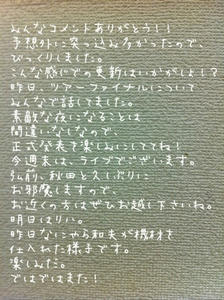 みんなコメントありがとう!!
予想外に突っ込み多かったので、
びっくりしました。
こんな感じでの更新はいかがでしょ!?
昨日、ツアーファイナルについて
みんなで話してました。
素敵な夜になることは
間違いなしなので、
正式発表を楽しみにしててね!
今週末は、ライブでございます。
弘前、秋田と久しぶりに
お邪魔しますので、
お近くの方はぜひお越し下さいね。
明日はリハ。
昨日なにやら和夫が機材を
仕入れた様子です。
楽しみだ。
ではではまた!